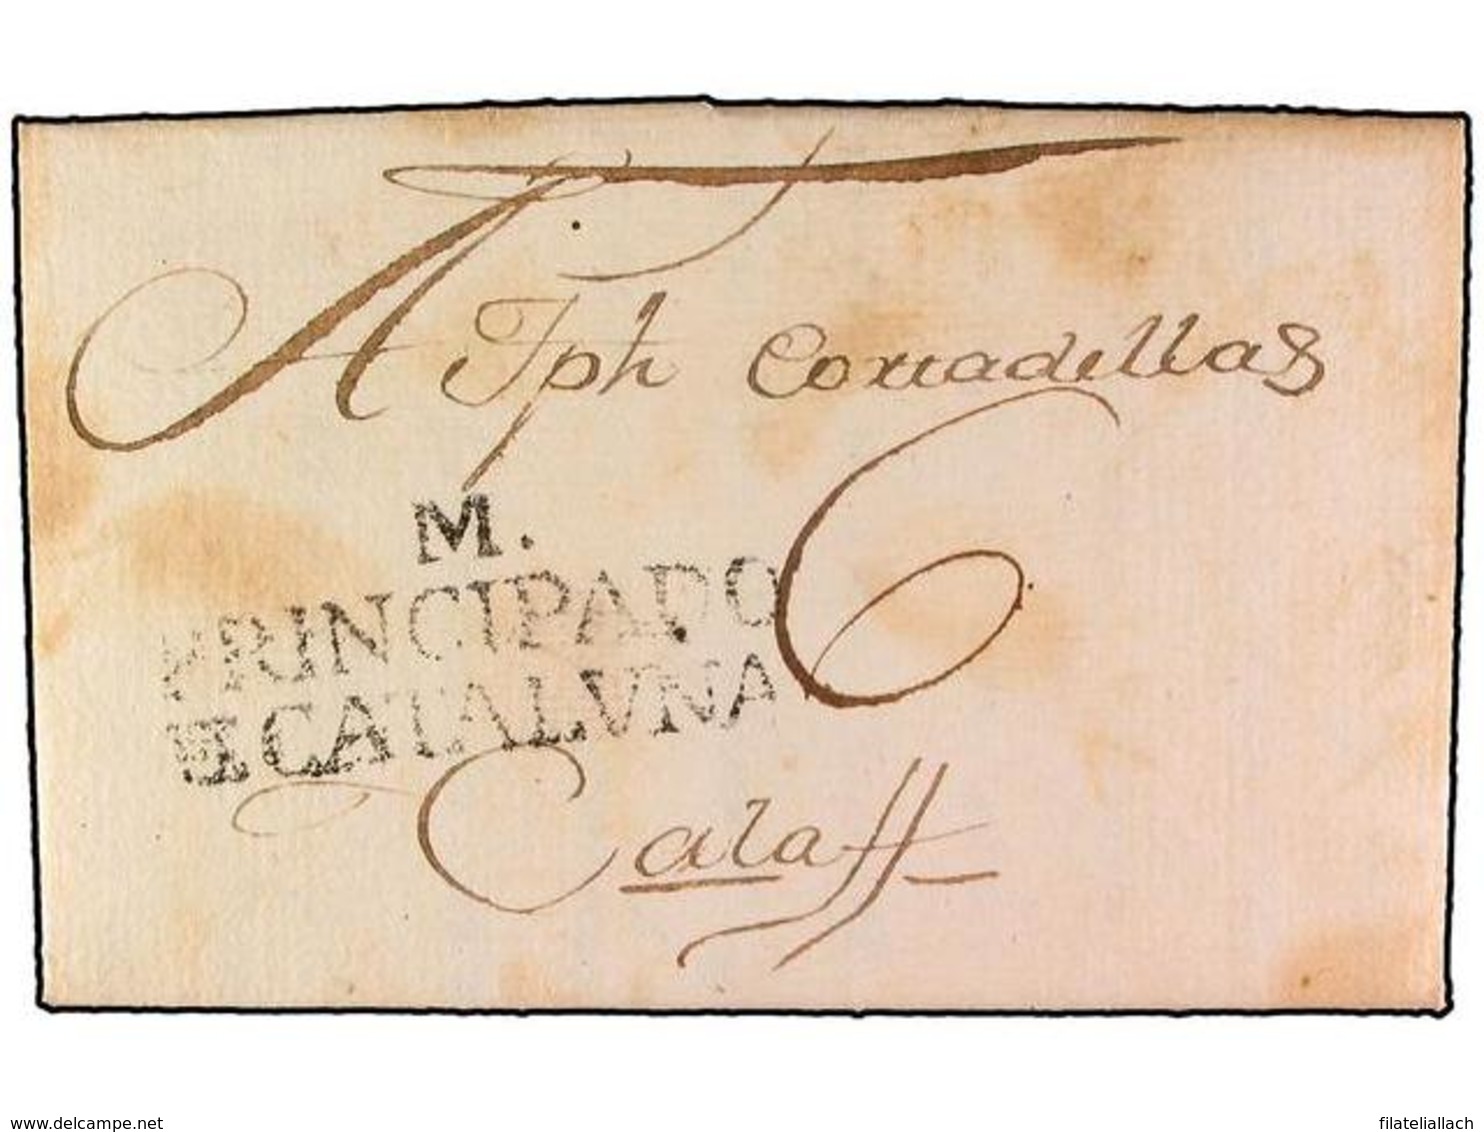 A Jph Corradellas
6
M.
PRINCIPADO
DE CATALVNA
Calaff
www.delcampe.net
filateliallach